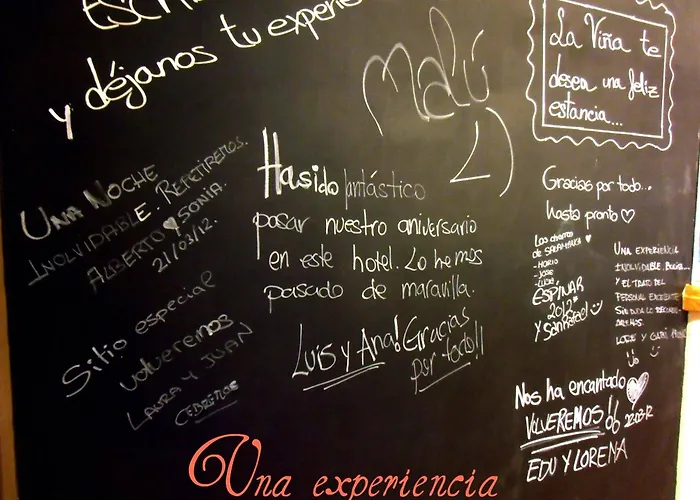 y déjanos tu
Malú
La Viña te
desea una feliz
estancia...
UNA NOCHE
INOLVIDABLE. REPETIREMOS.
ALBERTO SONIA.
21/03/12.
Ha sido fantástico
pasar nuestro aniversario
en este hotel. Lo hemos
pasado de maravilla.
Luis y Ana! Gracias
por todo!!
Sitio especial
volveremos
LAURA Y JUAN
CEBREROS
Gracias por todo...
hasta pronto
de SALAMANCA
- JOSE
ESPINAR
2012
Y San Rafael
UNA EXPERIENCIA
INOLVIDABLE.
Y EL TRATO DEL
PERSONAL EXCELENTE
SIN DUDA LO
Nos ha encantado
VOLVEREMOS!!
EDU Y LORENA
Una experiencia